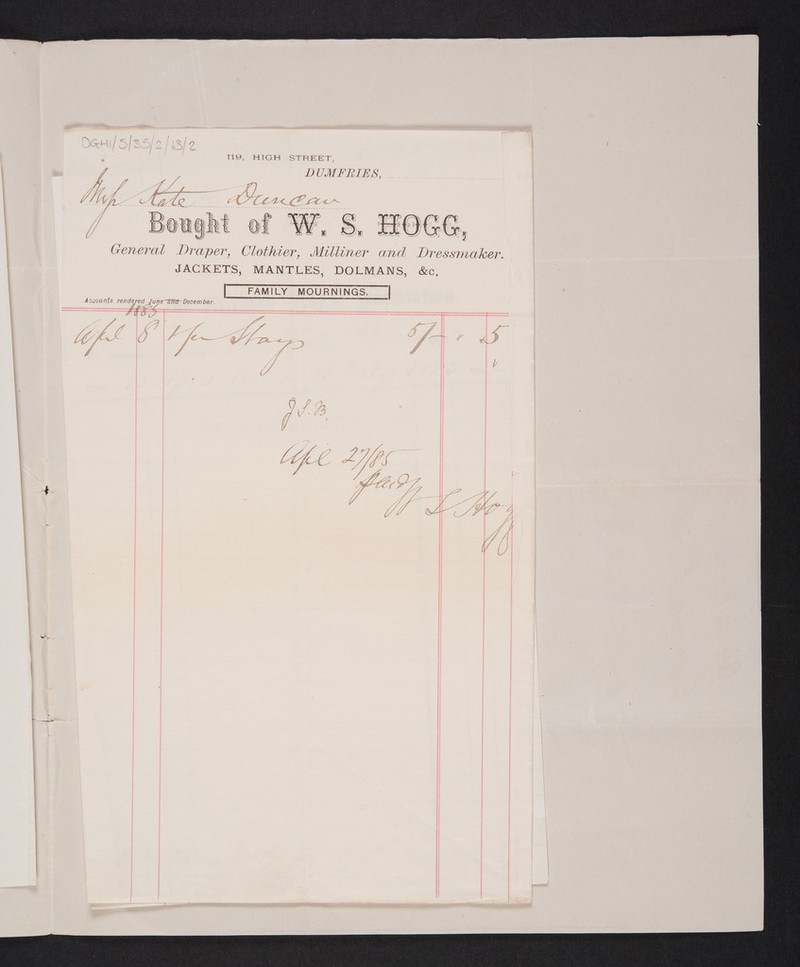 DGH1/5/3S/2/13/2
119, HIGH STREET,
DUMFRIES,
Miss Kate Duncan
Bought of W. S. HOGG,
General Draper, Clothier, Milliner and Dressmaker.
JACKETS, MANTLES, DOLMANS, &c.
FAMILY MOURNINGS.
Accounts rendered June and December.
1885
April 8 1 pr Stays 5/- " 5
J.S.B.
Apl 27/85
paid
W S Hogg